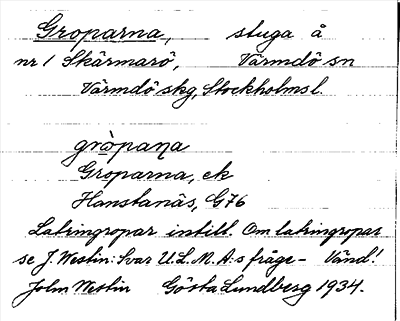 Groparna, stuga å
nr 1 Skärmarö, Värmdö sn
Värmdö skg, Stockholms l.
grò̀paṇa
Groparna, ek
Hanstanäs, G76
Latringropar intill. Om latringropar
se J. Westin: Svar U.L.M.A:s fråge- Vänd!
John Westin Gösta Lundberg 1934.